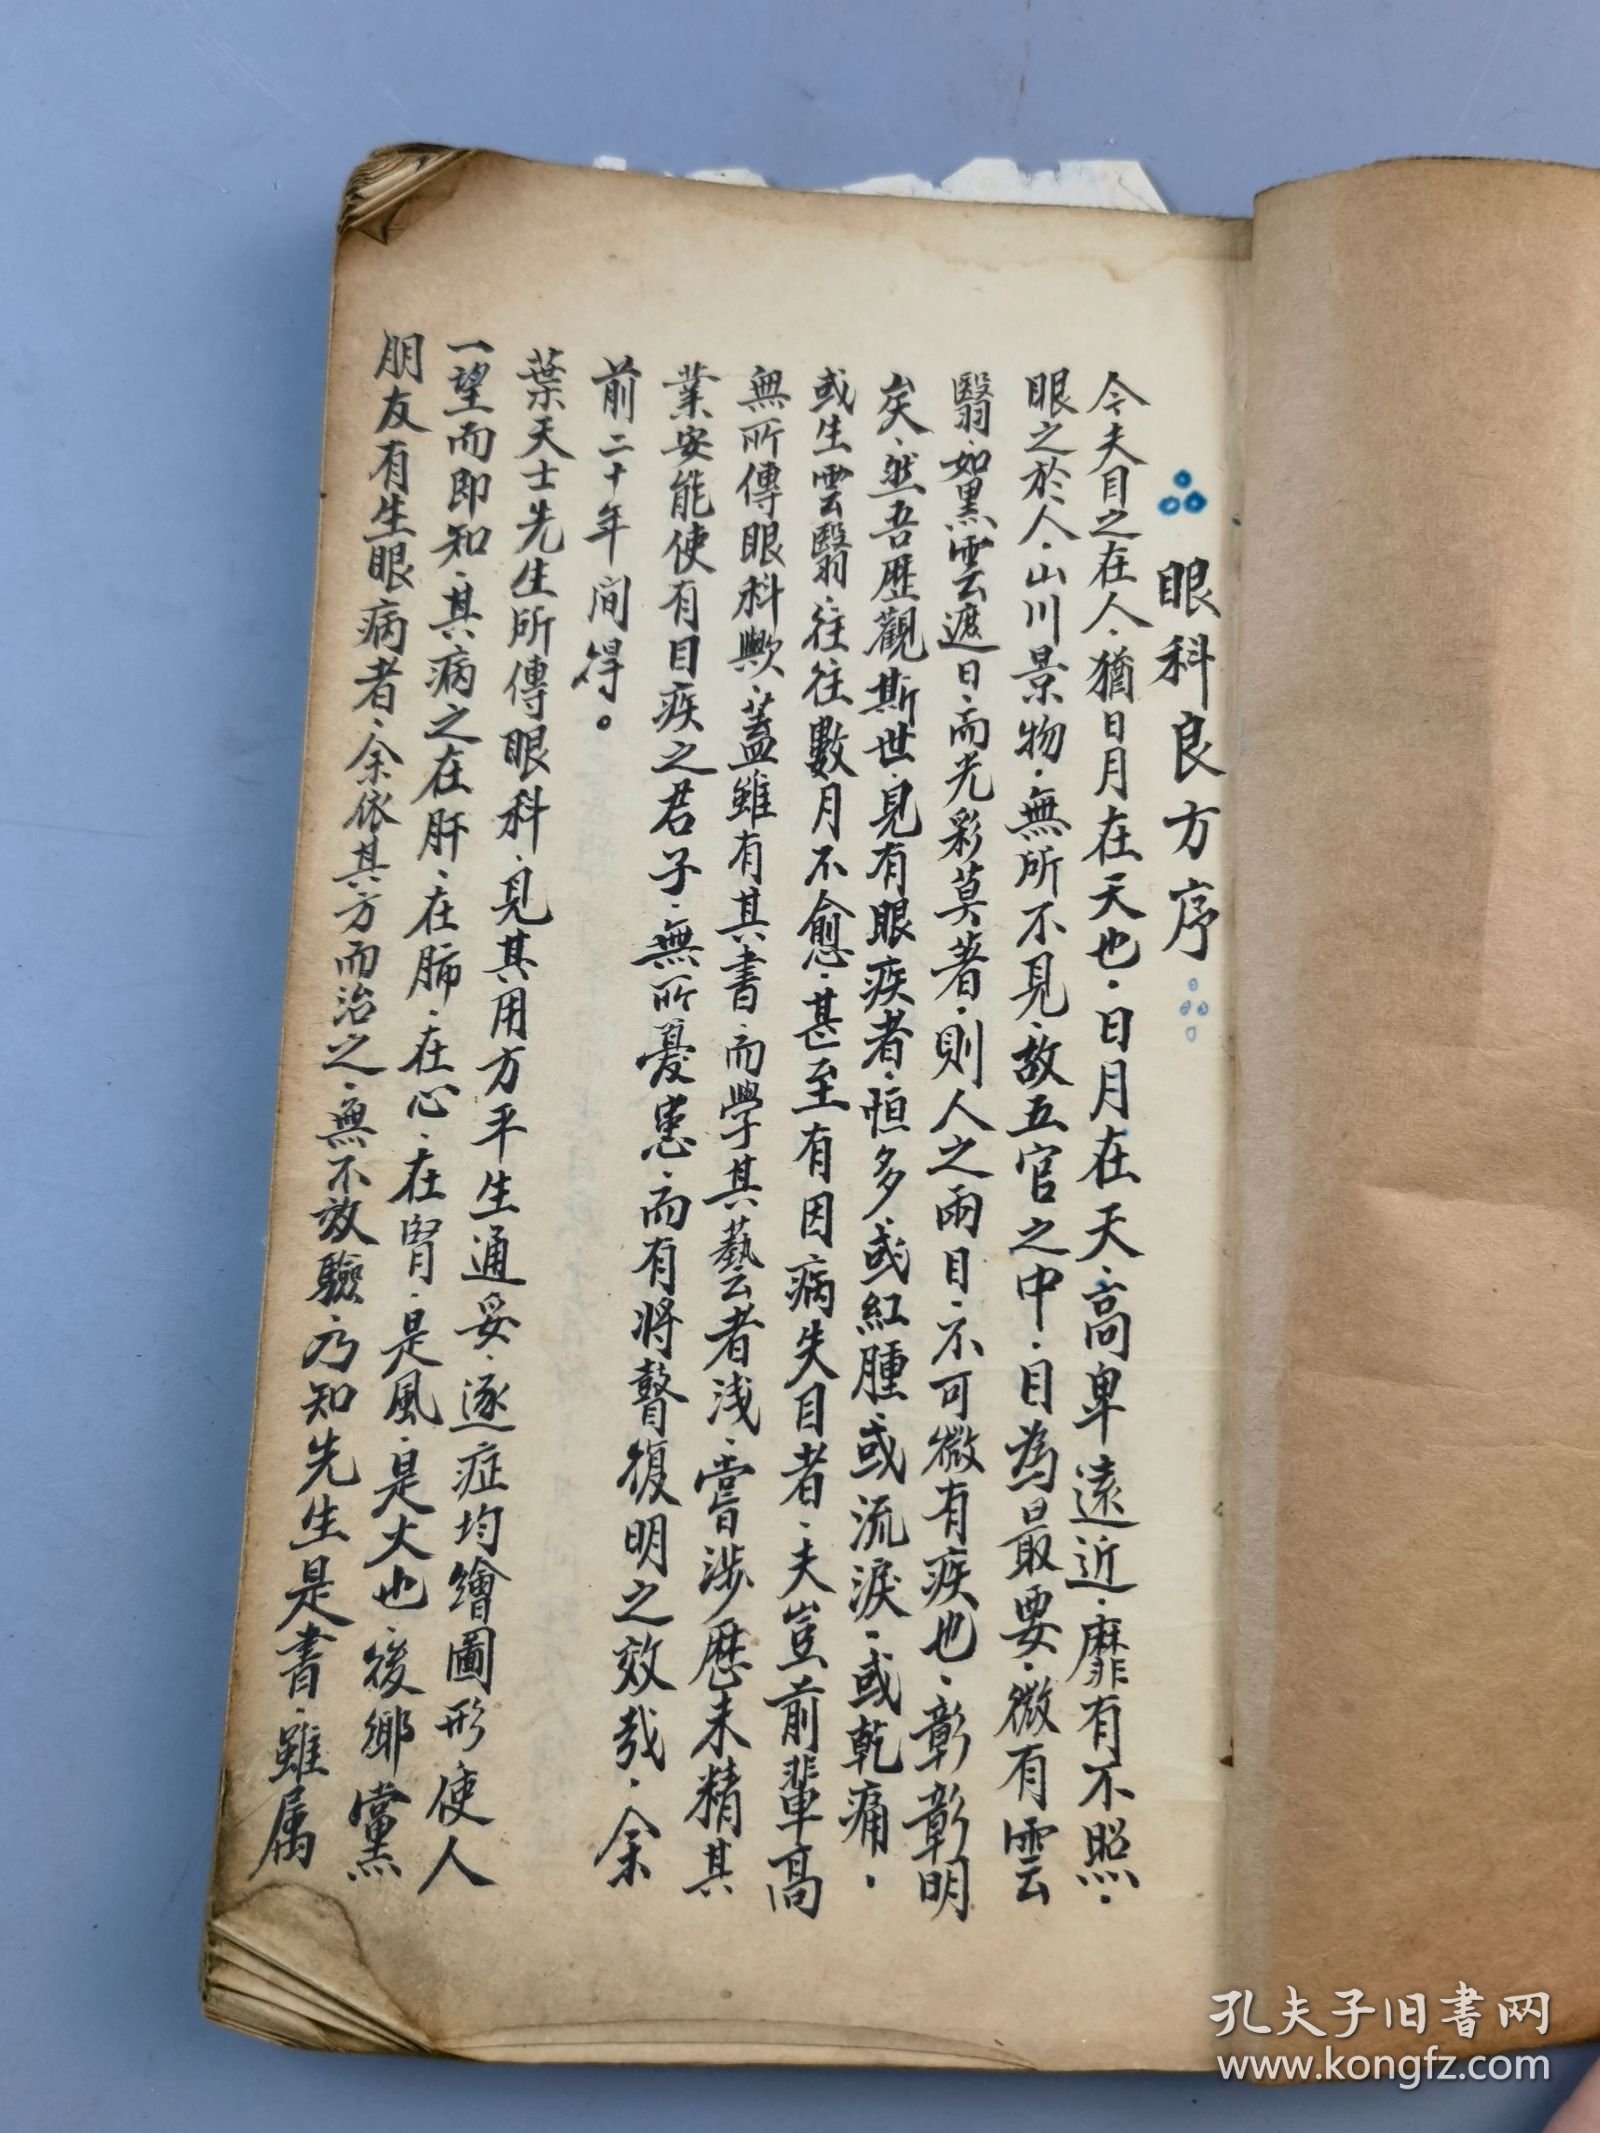 眼科良方序
今夫目之在人、猶日月在天也、日月在天、高卑遠近、靡有不照、
眼之於人、山川景物、無所不見、故五官之中、目為最要、微有雲
翳、如黑雲遮日、而光彩莫著、則人之兩目、不可微有疾也、彰彰明
矣、然吾歷觀斯世、見有眼疾者、恒多、或紅腫、或流淚、或乾痛、
或生雲翳、往往數月不愈、甚至有因病失目者、夫豈前輩高
無所傳眼科歟、蓋雖有其書、而學其藝者淺、嘗涉歷未精其
業安能使有目疾之君子、無所憂患、而有將瞽復明之效哉、余
前二十年间得。
葉天士先生所傳眼科、見其用方平生通妥、逐症均繪圖形使人
一望而即知、其病之在肝、在肺、在心、在胃、是風、是火也、後鄉黨
朋友有生眼病者、余依其方而治之、無不效驗、乃知先生是書、雖属
孔夫子旧书网
www.kongfz.com